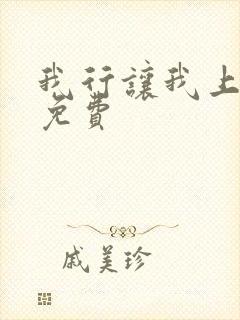 我行讓我上
免費
戚美珍